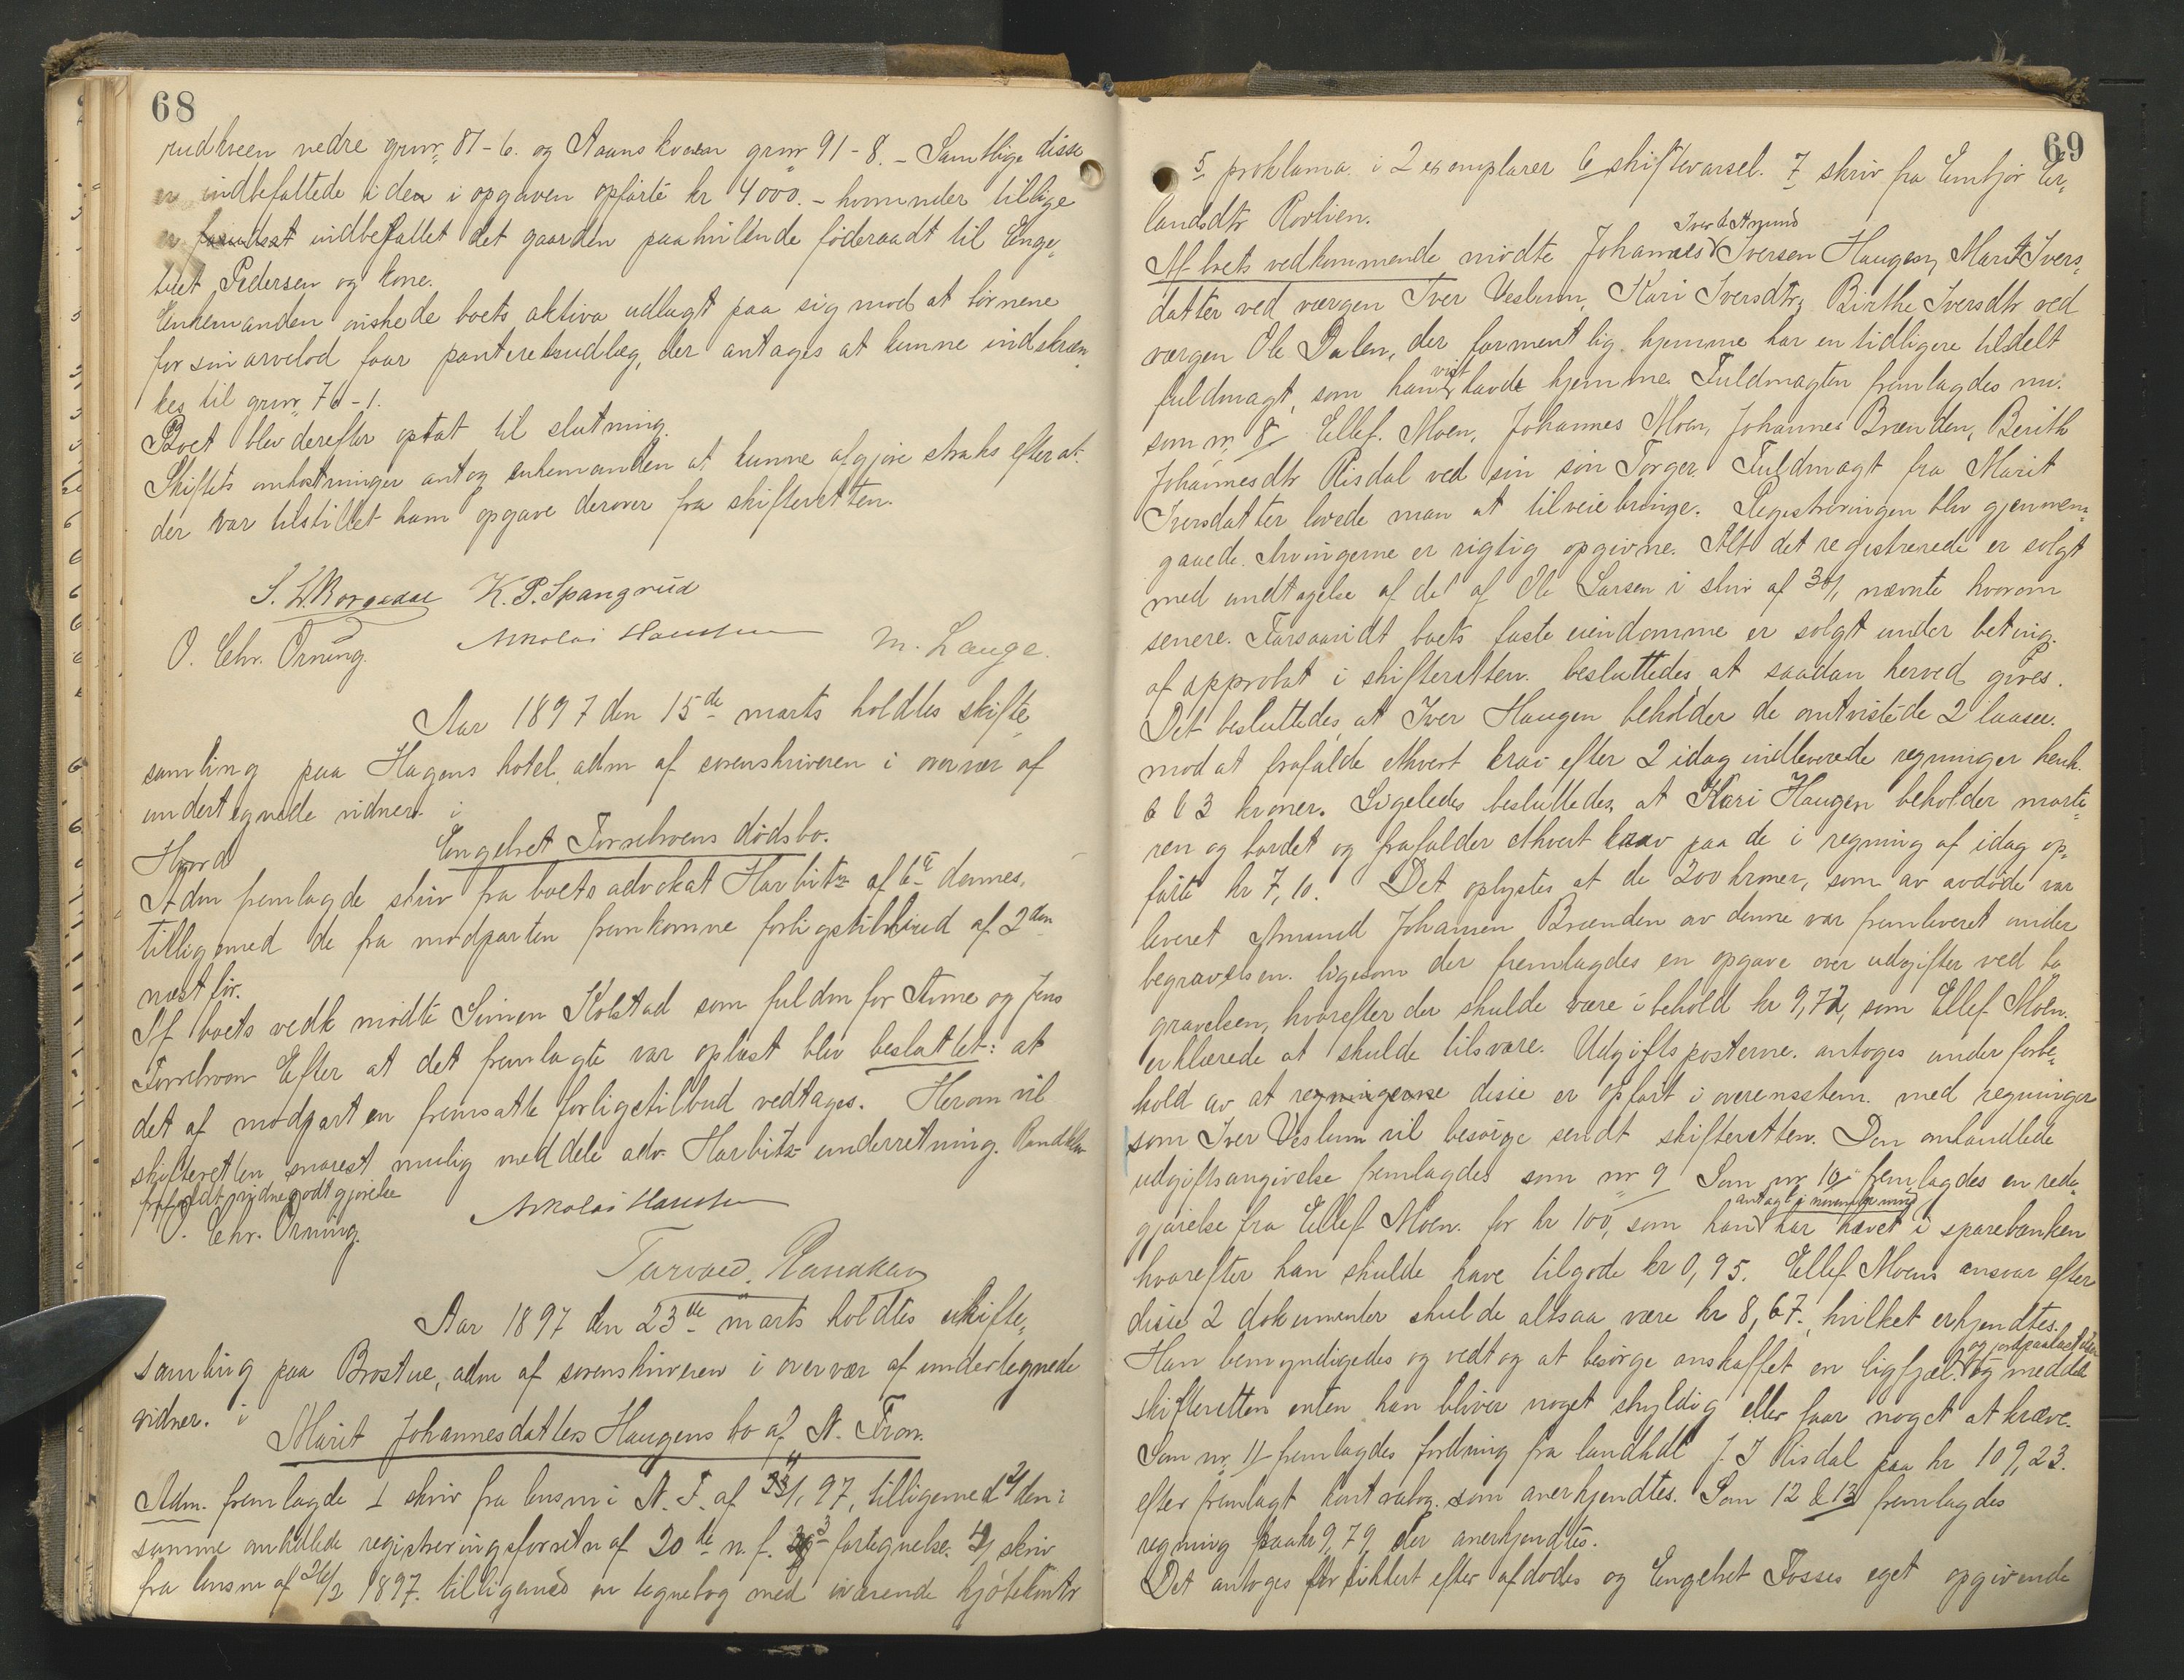 68
rudhveen nedre grnr. 81-6. og Aaanskveen grnr 91-8. - Samtlige disse
er indbefattede i den i opgaven opførte kr 4000. - hvorunder tillige
er indbefattet det gaarden paahvilende föderaadt til Enge-
bret Pedersen og kone.
Enkemanden önskede boets aktiva udlagt paa sig mod at börnene
for sin arvelod faar panteretsudlæg, der antages at kunne indskræn-
kes til grnr 76-1.
Boet blev derefter optat til slutning.
Skiftets omkostninger antog enkemanden at kunne afgjöre straks efter at
der var tilstillet ham opgave derover fra skifteretten.
K. P. Spangrud
O. Chr. Örning. Nikolai Hansen M. Lange.
Aar 1897 den 15de marts holdtes skifte-
samling paa Hagens hotel adm af sorenskriveren i overvær af
undertegnede vidner. i
Engebret Torrehvens dödsbo.
Hvord
Adm fremlagde skriv fra boets advokat Harbitz af 6te dennes,
tilligemed de fra modparten fremkomne forligstilbud af 2den
næst för.
Af boets vedk mödte Simen Kolstad som fuldm for Anne og Jens
Torrehven Efter at det fremlagte var oplæst blev besluttet: at
det af modparten fremsatte forligstilbud vedtages. Herom vil
skifteretten snarest mulig meddele adv. Harbitz underretning.
frafaldt vidnegodtgjörelse
O. Chr. Örning. Nikolai Hansen
Aar 1897 den 23de marts holdtes skifte-
samling paa Brostue, adm af sorenskriveren i overvær af undertegnede
vidner. i
Marit Johannesdatters Haugens bo af N. Fron.
Adm. fremlagde 1 skriv fra lensm i N. F. af 97, tilligemed 2 den i
samme omhdlede registreringsforretn af 20de n. f. 3 fortegnelse. 4 skriv
fra lensm af 26/2 1897. tilligemed en tegnebog med iværende kjöbekontr
69
5 proklama i 2 exemplarer 6 skiftevarsel. 7 skriv fra Embjör Er-
landsdtr Rovlien.
Iver & Amund
Af boets vedkommende mödte Johannes Iversen Haugen, Marit Ivers-
datter ved værgen Iver Veslum, Kari Iversdtr, Birthe Iversdtr ved
værgen Ole Dalen, der formentlig hjemme har en tidligere tildelt
fuldmagt, som han vist havde hjemme. Fuldmagten fremlagdes nu.
som nr 8 Ellef. Moen, Johannes Moen, Johannes Brænden, Berith
Johannesdtr Risdal ved sin sön Torger. Fuldmagt fra Marit
Iversdatter lovede man at tilveiebringe. Registreringen blev gjennem-
gaaede. Arvingerne er rigtig opgivne. Alt det registrerede er solgt
med undtagelse af det af Ole Larsen i skriv af nævnte hvorom
senere. Forsaavidt boets faste eiendomme er solgt under beting.
af approbat i skifteretten. besluttedes at saadan herved gives.
Det besluttedes at Iver Haugen beholder de omtvistede 2 laase.
mod at frafalde ethvert krav efter 2 idag indleverede regninger henh.
6 & 3 kroner. Ligeledes besluttedes, at Kari Haugen beholder morte-
ren og bordet og frafalder ethvert krav paa de i regning af idag op-
förte kr 7,10. Det oplystes at de 200 kroner, som av avdöde var
leveret Amund Johansen Brænden av denne var fremleveret under
begravelsen. ligesom der fremlagdes en opgave over udgifter ved be
gravelsen, hvorefter der skulde være i behold kr 9,72, som Ellef Moen.
erklærede at skulde tilsvare. Udgiftsposterne. antoges under forbe-
hold av at regningerne disse er opfört i overensstem. med regninger
som Iver Veslum vil besörge sendt skifteretten. Den omhandlede
udgiftsangivelse fremlagdes som nr 9 Som nr 10 fremlagdes en rede-
antagl i
gjörelse fra Ellef Moen. for kr 100, som han har hævet i sparebanken
hvorefter han skulde have tilgode kr 0,95. Ellef Moens ansvar efter
disse 2 dokumenter skulde altsaa være kr 8,67, hvilket erkjendtes.
og jordpaakastelse
Han bemyndigedes og vedtog at besörge anskaffet en ligfjæl. og meddele
skifteretten enten han bliver noget skyldig eller faar noget at kræve.
Som nr. 11 fremlagdes fordring fra landhdl J. J Risdal paa kr 109,23.
efter fremlagt kontrabog. som anerkjendtes. Som 12 & 13 fremlagdes
regning paa kr 9,79, der anerkjendtes.
Det antoges for sikkert efter afdödes og Engebret Fosses eget opgivende